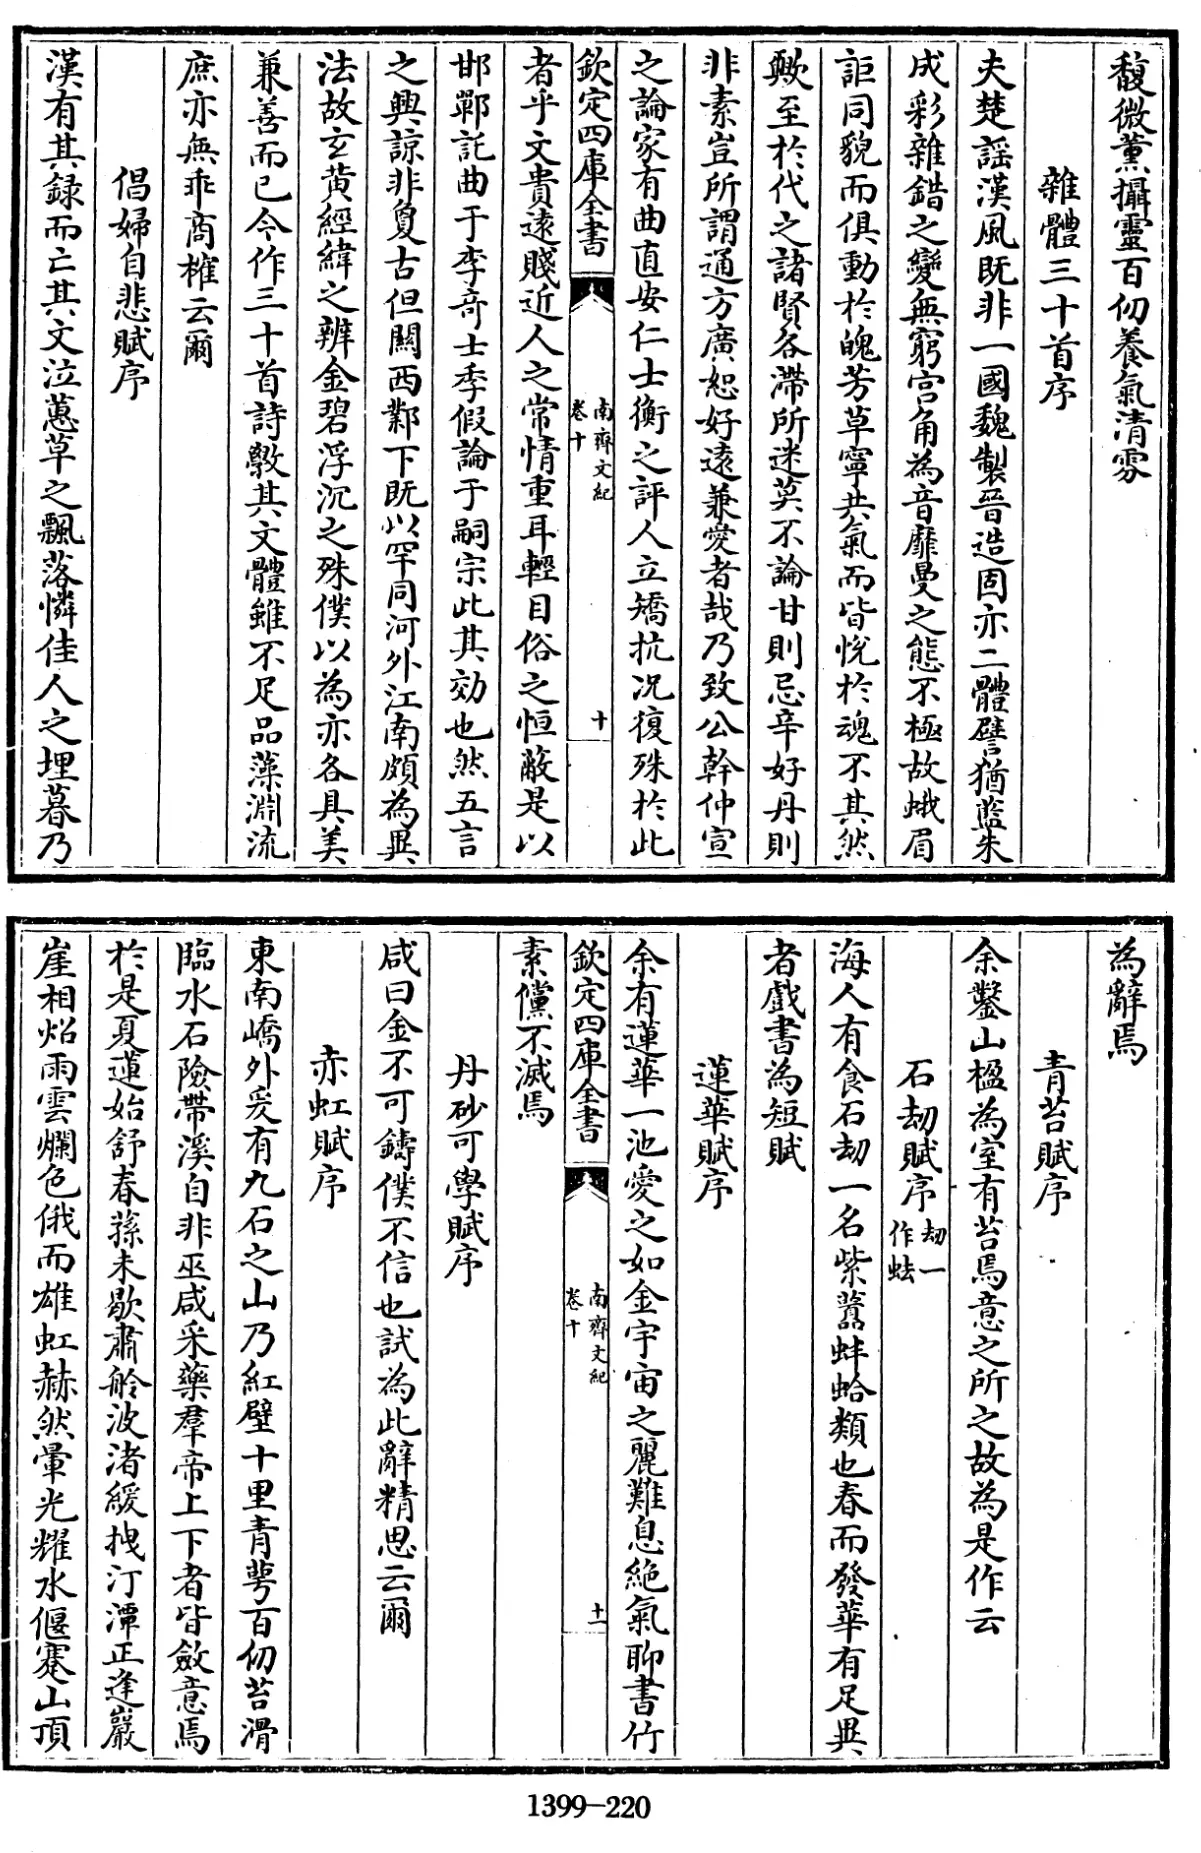 馥微薰攝靈百仞養氣清雰
雜體三十首序
夫楚謡漢風既非一國魏製晉造固亦二體譬猶藍朱
成彩雜錯之變無窮宫角為音靡曼之態不極故蛾眉
詎同貌而俱動於魄芳草寧共氣而皆悅於魂不其然
歟至於代之諸賢各滯所迷莫不論甘則忌辛好丹則
非素豈所謂通方廣恕好遠兼愛者哉乃致公幹仲宣
之論家有曲直安仁士衡之評人立矯抗况復殊於此
欽定四庫全書
南齊文紀
卷十
十
者乎文貴遠賤近人之常情重耳輕目俗之恒蔽是以
邯鄲託曲于李竒士季假論于嗣宗此其効也然五言
之興諒非敻古但關西鄴下既以罕同河外江南頗為異
法故玄黄經緯之辨金碧浮沉之殊僕以為亦各具美
兼善而已今作三十首詩斅其文體雖不足品藻淵流
庶亦無乖商榷云爾
倡婦自悲賦序
漢有其録而亡其文泣蕙草之飄落憐佳人之埋暮乃
為辭焉
青苔賦序
余鑿山楹為室有苔焉意之所之故為是作云
石刼賦序刼一作蛣
海人有食石刼一名紫䕫蚌蛤類也春而發華有足異
者戲書為短賦
蓮華賦序
余有蓮華一池愛之如金宇宙之麗難息絶氣聊書竹
欽定四庫全書
南齊文紀
卷十
十一
素儻不滅焉
丹砂可學賦序
咸曰金不可鑄僕不信也試為此辭精思云爾
赤虹賦序
東南嶠外爰有九石之山乃紅壁十里青萼百仞苔滑
臨水石險帶溪自非巫咸采藥羣帝上下者皆斂意焉
於是夏蓮始舒春蓀未歇肅舲波渚緩拽汀潭正逢巖
崖相炤雨雲爛色俄而雄虹赫然暈光耀水偃蹇山頂
1399-220